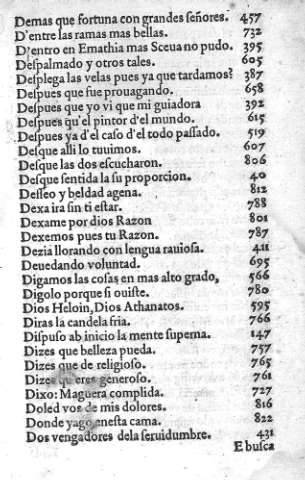 Demas que fortuna con grandes señores. 457
D'entre las ramas mas bellas. 732
D'entro en Emathia mas Sceua no pudo. 395
Despalmado y otros tales. 605
Desplega las velas pues ya que tardamos? 387
Despues que sue prouagando. 658
Despues que yo vi que mi guiadora 392
Despues qu'el pintor d'el mundo. 615
Despues ya d'el caso d'el todo passado. 519
Desque alli lo tuuimos. 607
Desque las dos escucharon. 806
Desque sentida la su proporcion. 40
Desseo y beldad agena. 812
Dexa ira sin ti estar. 788
Dexame por dios Razon 801
Dexemos pues tu Razon. 787
Dezia llorando con lengua rauiosa. 411
Deuedando voluntad. 695
Digamos las cosas en mas alto grado, 566
Digolo porque si ouiste. 780
Dios Heloin, Dios Athanatos. 595
Diras la candela fria. 766
Dispuso ab inicio la mente superna. 147
Dizes que belleza pueda. 757
Dizes que de religioso. 765
Dizes queres generoso. 761
Dixo: Maguera complida. 727
Doled vos de mis dolores. 816
Donde yago enesta cama. 822
Dos vengadores dela seruidumbre. 431
E busca